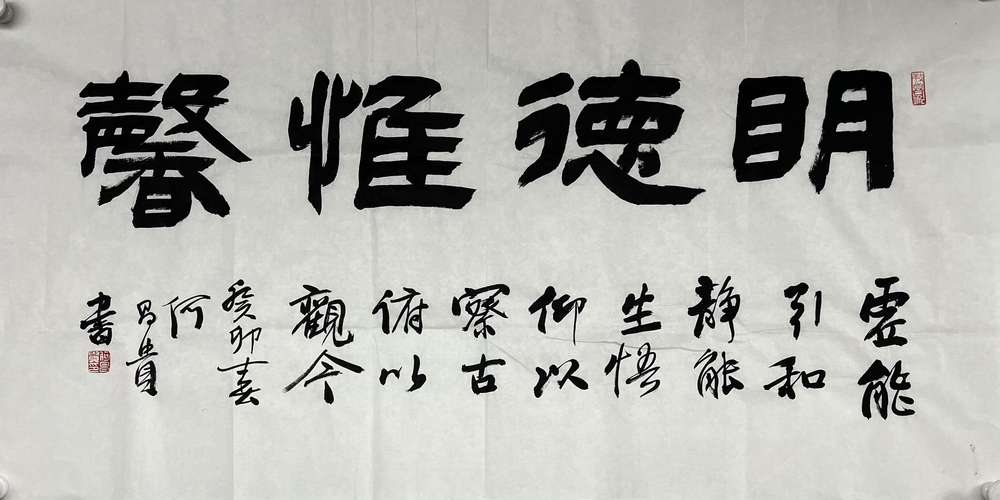 明德惟馨
虚能
引和
静能
生悟
仰以
察古
俯以
觀今
癸卯春
何
昌貴
書